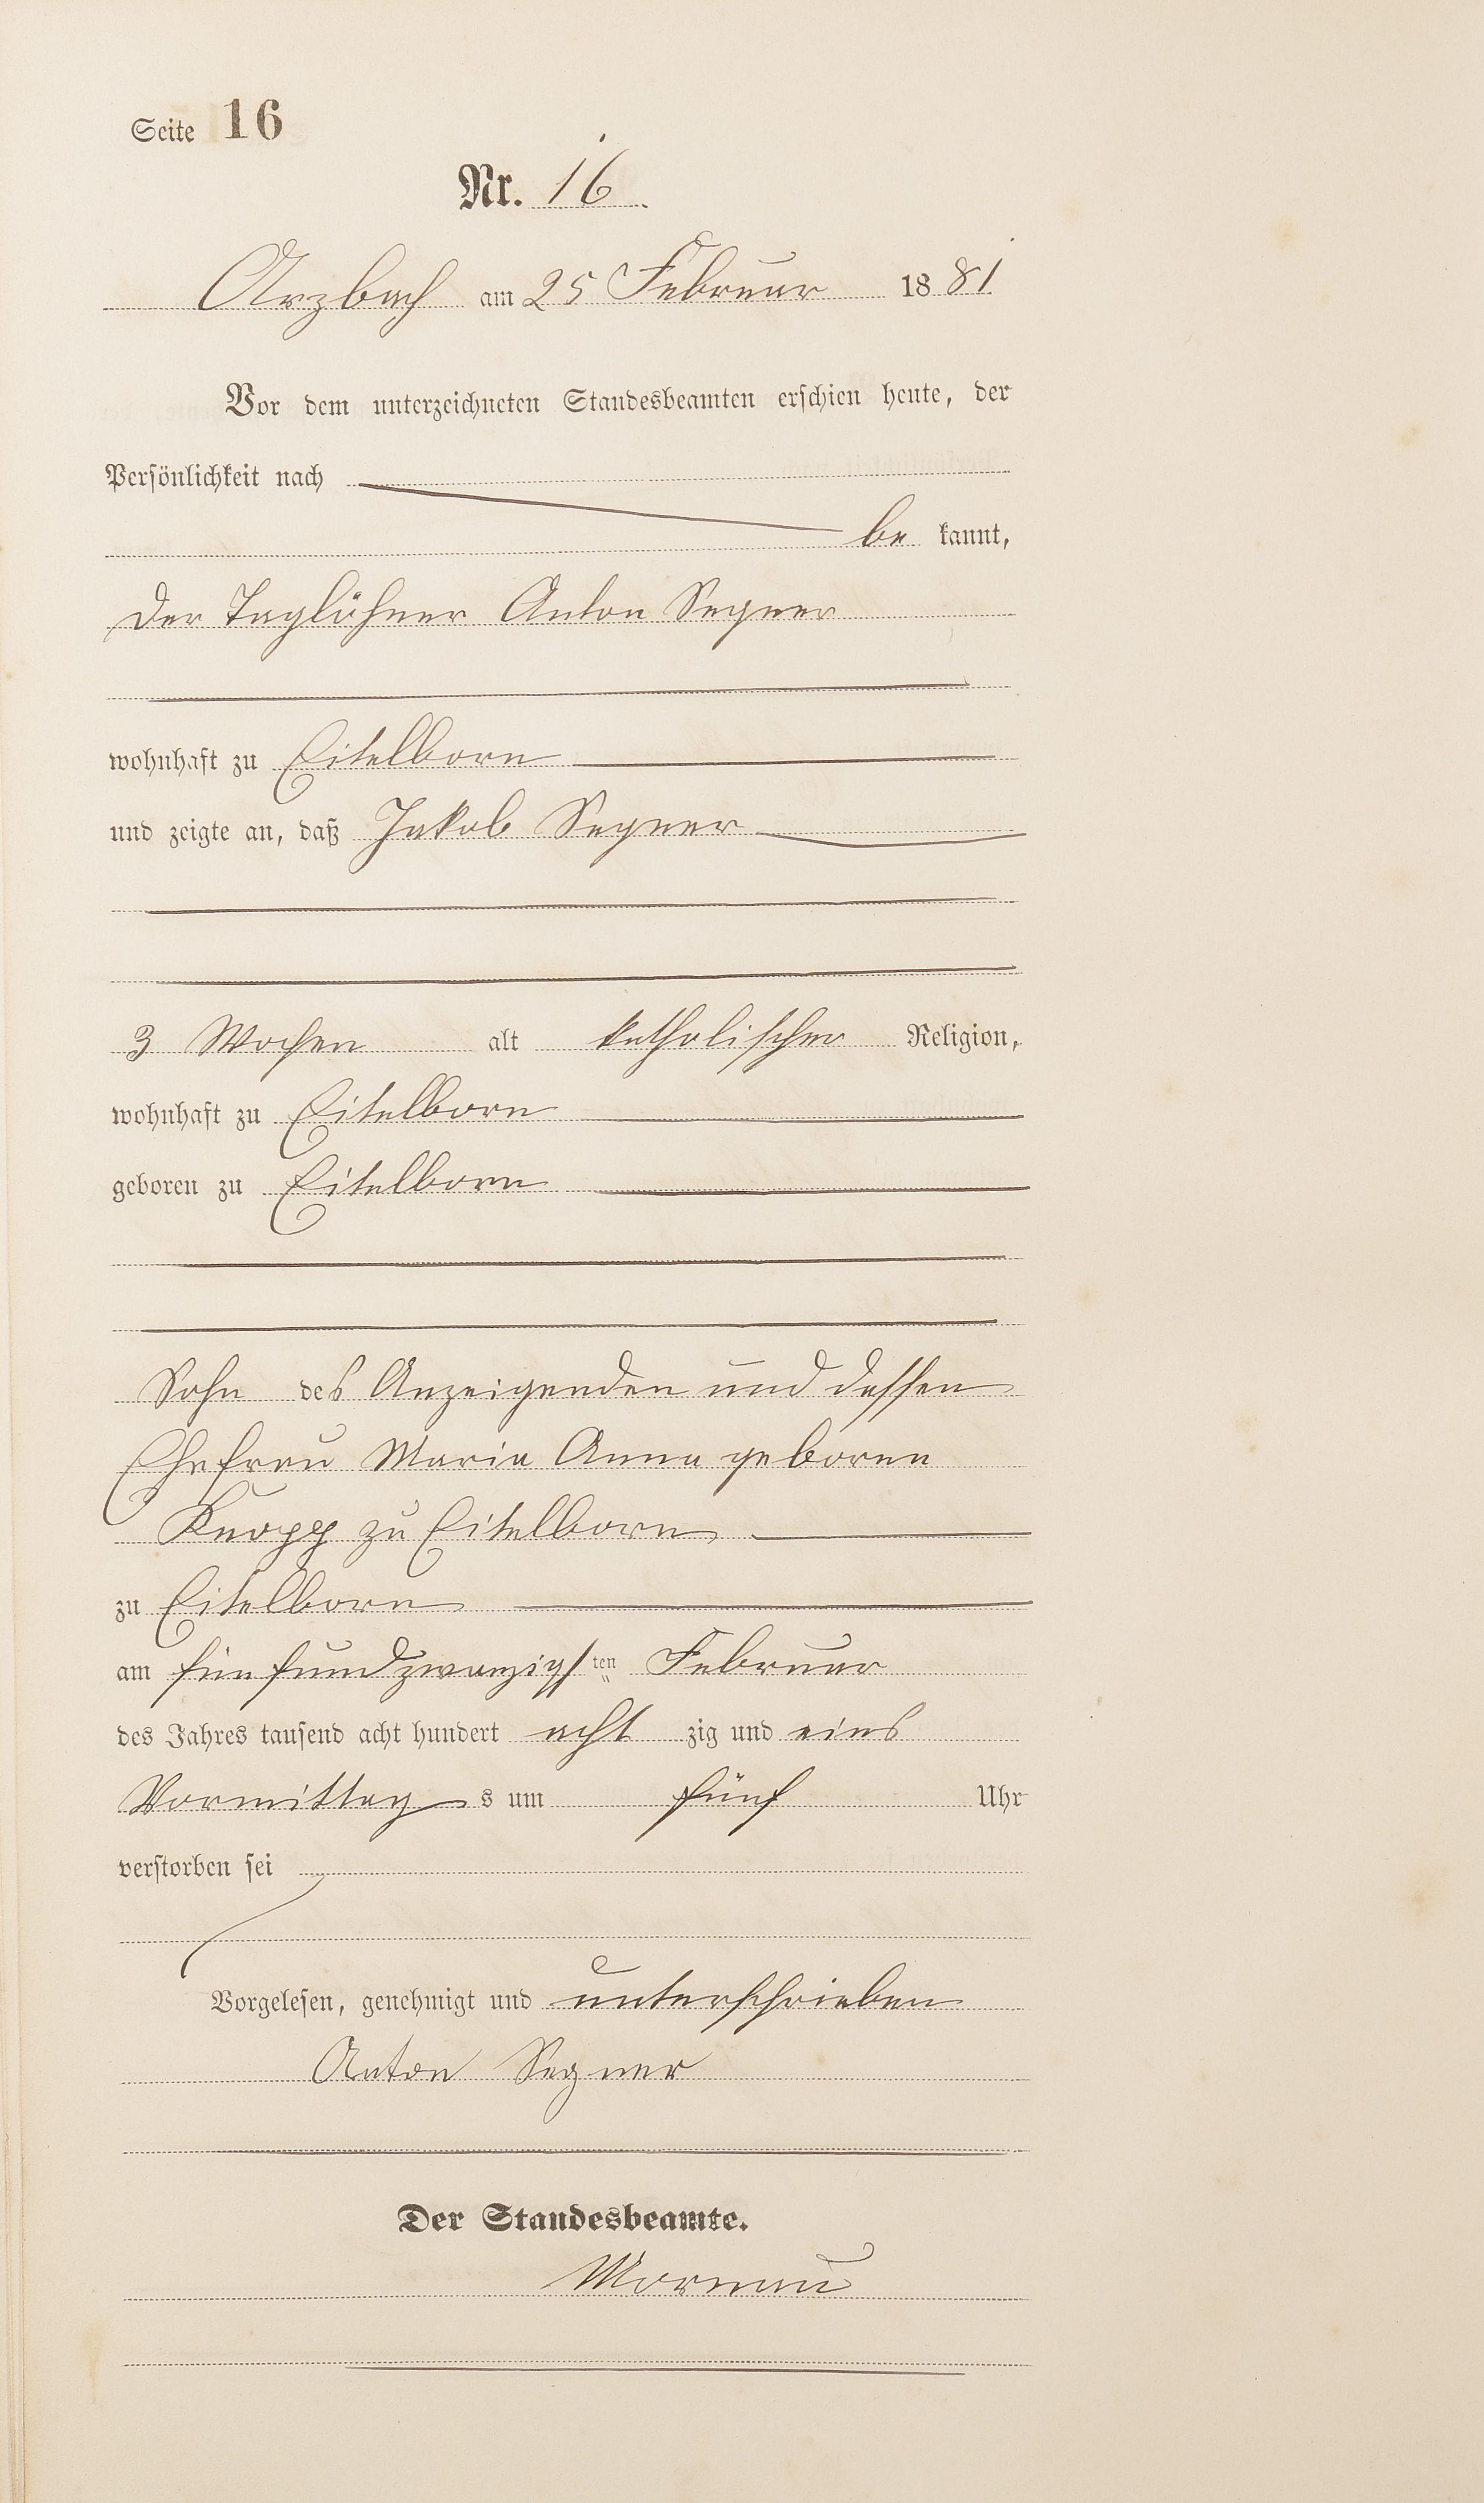 Seite 16
Nr. 16
Arzbach am 25 Februar 1881
Vor dem unterzeichneten Standesbeamten erschien heute, der
Persönlichkeit nach
be kannt,
der Taglöhner Anton Segner
wohnhaft zu Eitelborn
und zeigte an, daß Jakob Segner
3 Wochen alt katholischer Religion,
wohnhaft zu Eitelborn
geboren zu Eitelborn
Sohn des Anzeigenden und dessen
Ehefrau Maria Anna geboren
Knopp zu Eitelborn
zu Eitelborn
am fünfundzwanzigsten Februar
des Jahres tausend acht hundert acht zig und eins
Vormittag s um fünf Uhr
verstorben sei
Vorgelesen, genehmigt und unterschrieben
Anton Segner
Der Standesbeamte.